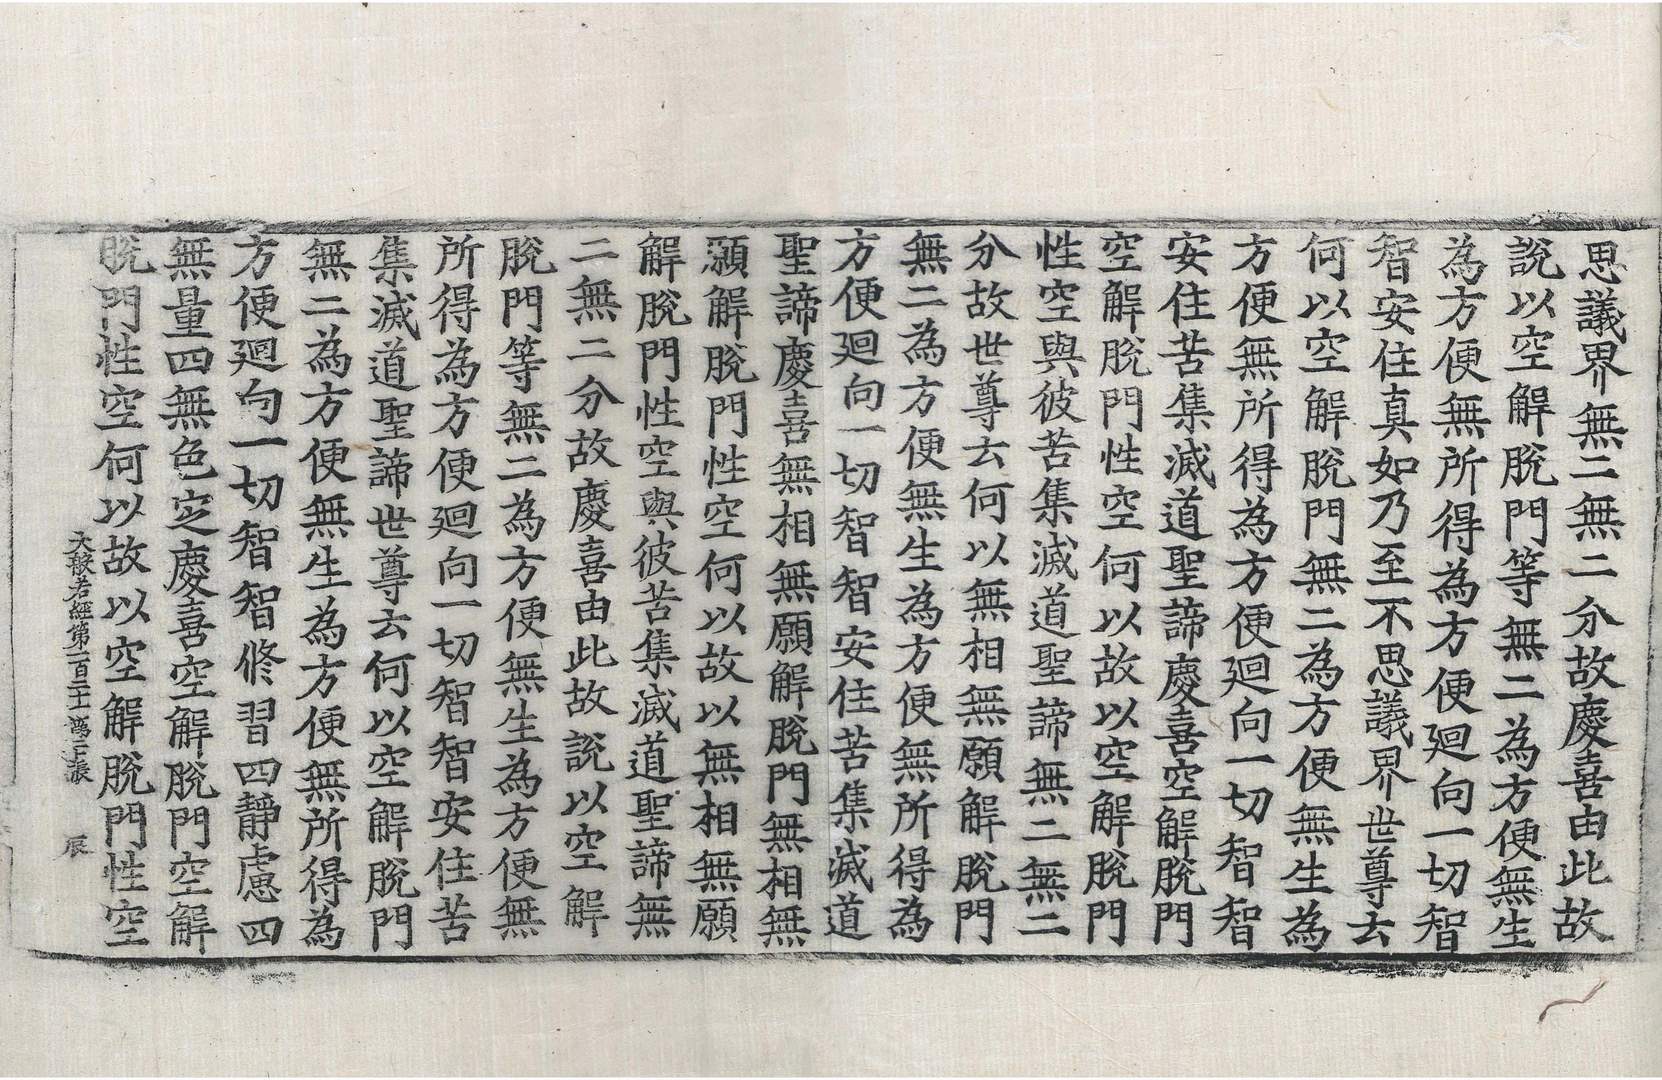 思議界無二無二分故慶喜由此故
說以空解脫門等無二為方便無生
為方便無所得為方便廻向一切智
智安住真如乃至不思議界世尊云
何以空解脫門無二為方便無生為
方便無所得為方便廻向一切智智
安住苦集滅道聖諦慶喜空解脫門
空解脫門性空何以故以空解脫門
性空與彼苦集滅道聖諦無二無二
分故世尊云何以無相無願解脫門
無二為方便無生為方便無所得為
方便廻向一切智智安住苦集滅道
聖諦慶喜無相無願解脫門無相無
願解脫門性空何以故以無相無願
解脫門性空與彼苦集滅道聖諦無
二無二分故慶喜由此故說以空解
脫門等無二為方便無生為方便無
所得為方便廻向一切智智安住苦
集滅道聖諦世尊云何以空解脫門
無二為方便無生為方便無所得為
方便廻向一切智智修習四靜慮四
無量四無色定慶喜空解脫門空解
脫門性空何以故以空解脫門性空
大般若經第一百二十一 張 辰